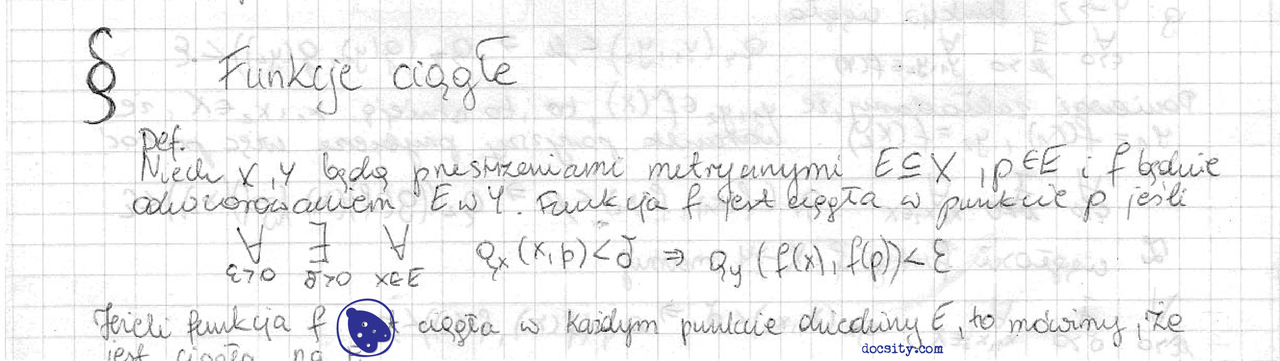 § Funkcje ciągłe
Def.
Niech X, Y będą przestrzeniami metrycznymi E ⊆ X, p ∈ E i f będzie
odwzorowaniem E w Y. Funkcja f jest ciągła w punkcie p jeśli
∀ ε>0 ∃ δ>0 ∀ x∈E ϱx (x, p) < δ ⇒ ϱy (f(x), f(p)) < ε
Jeżeli funkcja f ciągła w każdym punkcie dziedziny E, to mówimy, że
jest ciągła na
docsity.com